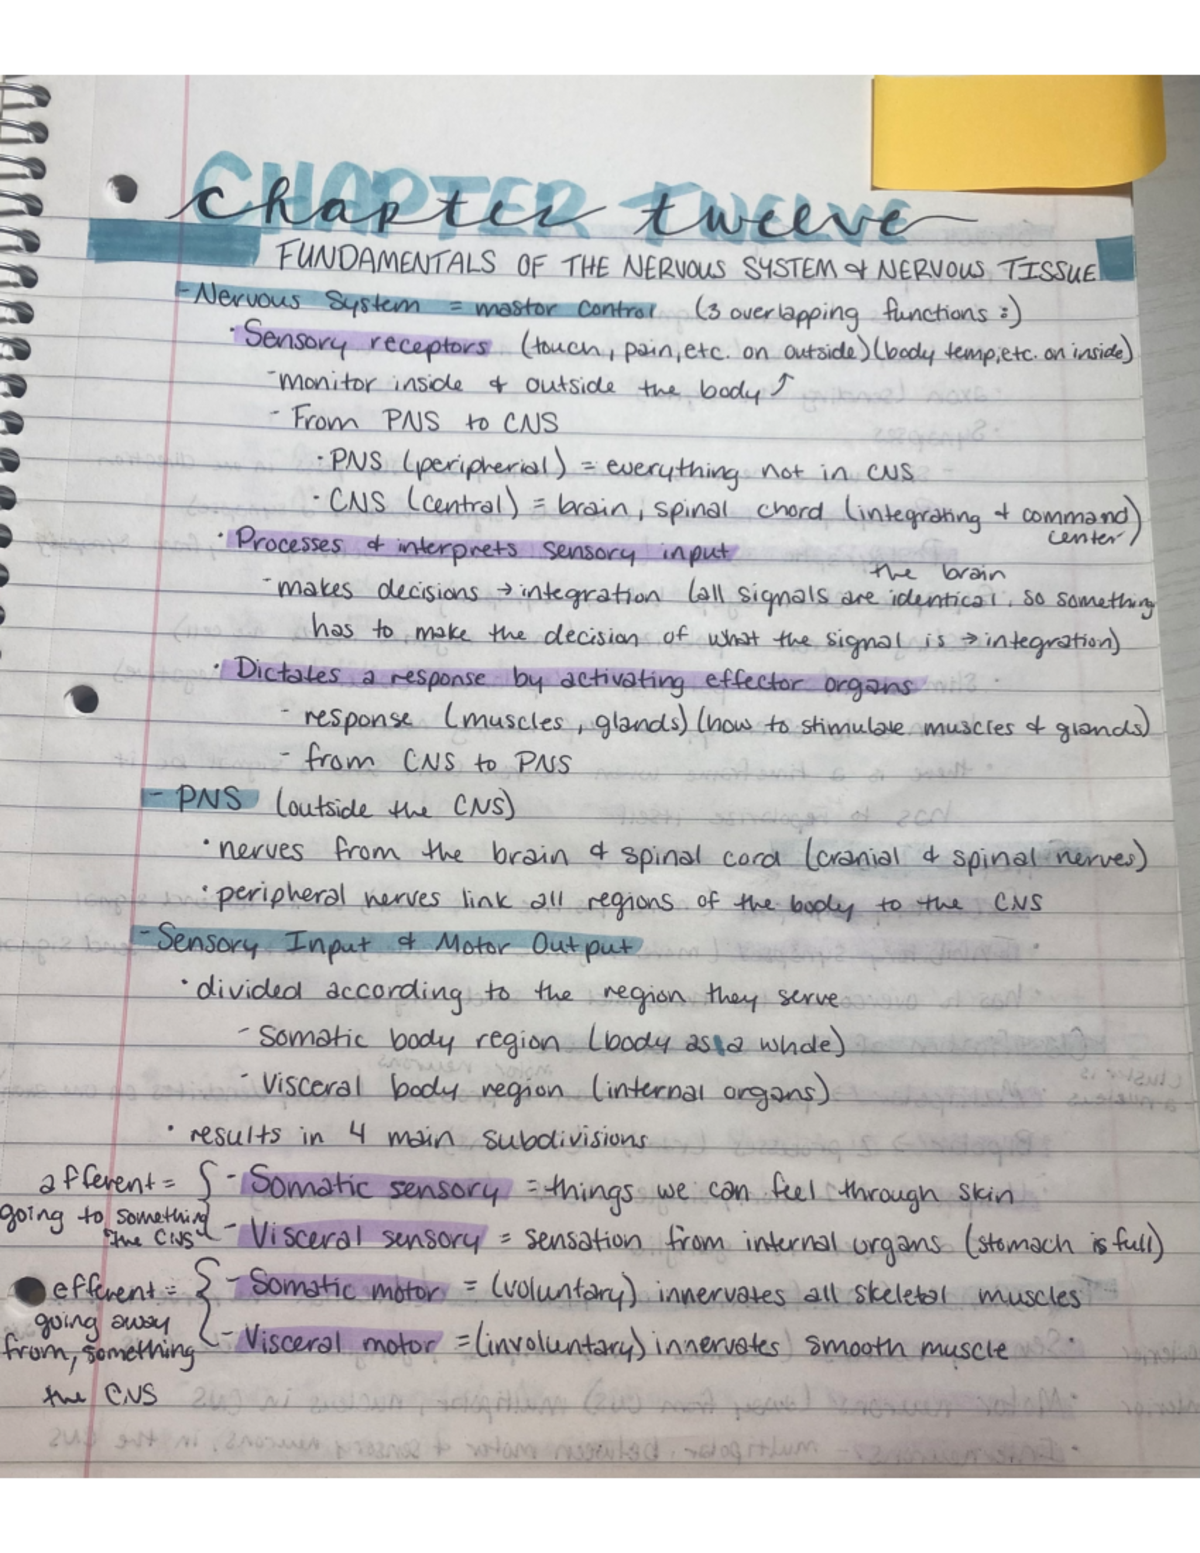 CHAPTER TWELVE
chapter twelve
FUNDAMENTALS OF THE NERVOUS SYSTEM & NERVOUS TISSUE
- Nervous System = mastor control (3 overlapping functions :)
· Sensory receptors (touch, pain, etc. on outside) (body temp, etc. on inside)
- monitor inside & outside the body ↑
- From PNS to CNS
· PNS (peripherial) = everything not in CNS
· CNS (central) = brain, spinal chord (integrating + command center)
· Processes & interprets sensory input
the brain
- makes decisions → integration (all signals are identical, so something
has to make the decision of what the signal is → integration)
· Dictates a response by activating effector organs
- response (muscles, glands) (how to stimulate muscles & glands)
- from CNS to PNS
- PNS (outside the CNS)
· nerves from the brain & spinal cord (cranial & spinal nerves)
· peripheral nerves link all regions of the body to the CNS
- Sensory Input & Motor Output
· divided according to the region they serve
- Somatic body region (body as a whole)
- Visceral body region (internal organs)
· results in 4 main subdivisions
afferent = { - Somatic sensory = things we can feel through skin
going to something "the CNS" - Visceral sensory = sensation from internal organs (stomach is full)
efferent = { - Somatic motor = (voluntary) innervates all skeletal muscles
going away
from, something - Visceral motor = (involuntary) innervates smooth muscle
the CNS